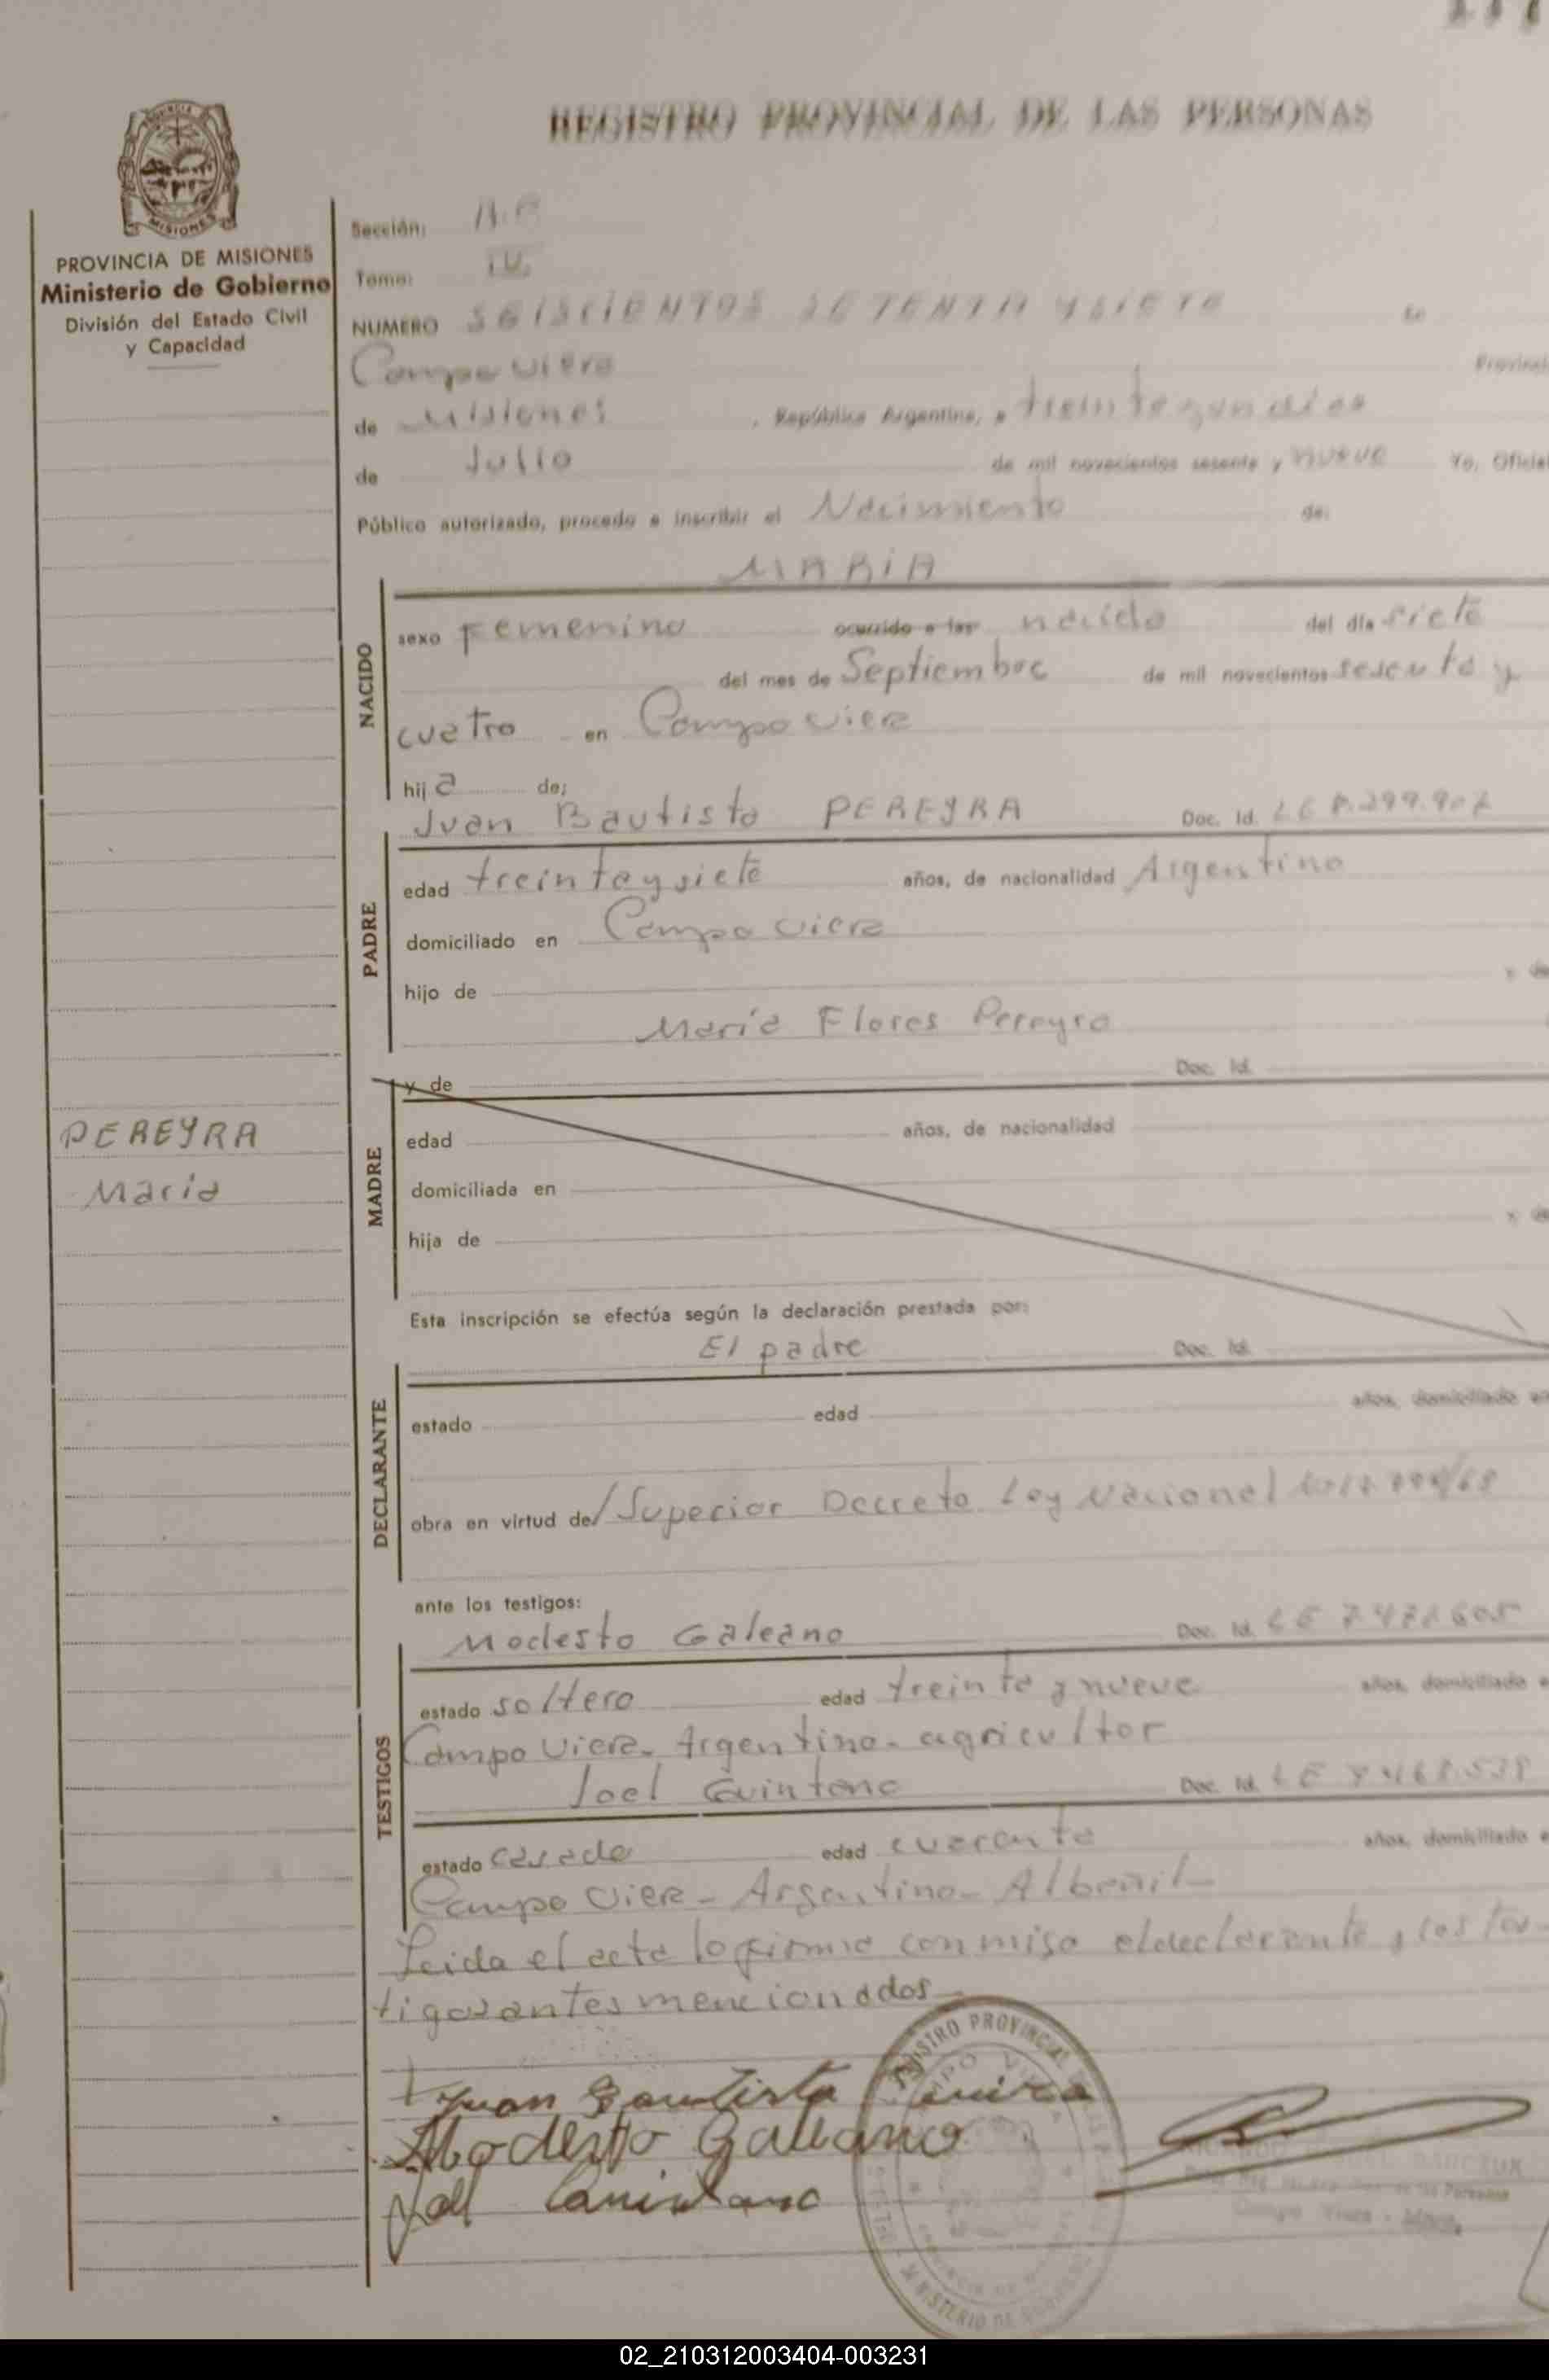 REGISTRO PROVINCIAL DE LAS PERSONAS
PROVINCIA
MISIONES
PROVINCIA DE MISIONES
Ministerio de Gobierno
División del Estado Civil
y Capacidad
PEREYRA
Maria
Sección:
Tomo: IV.
NUMERO SEISCIENTOS SETENTA Y SIETE En
Campo Viera Provinci
de Misiones , República Argentina, a treinta y un dias
de Julio de mil novecientos sesenta y nueve Yo, Oficial
Público autorizado, procedo a inscribir el Nacimiento de:
MARIA
NACIDO
sexo Femenino ocurrido a las nacida del día siete
del mes de Septiembre de mil novecientos sesenta y
cuatro en Campo Viera
hij a de;
Juan Bautista PEREYRA Doc. Id. LE
PADRE
edad treinta y siete años, de nacionalidad Argentino
domiciliado en Campo Viera
hijo de y de
María Flores Pereyra
MADRE
y de Doc. Id.
edad años, de nacionalidad
domiciliada en
hija de y de
Esta inscripción se efectúa según la declaración prestada por:
El padre Doc. Id.
DECLARANTE
estado edad años, domiciliado en
obra en virtud de/Superior Decreto Ley Nacional
ante los testigos:
Modesto Galeano Doc. Id. LE
TESTIGOS
estado soltero edad treinta y nueve años, domiciliado e
Campo Viera. Argentino. agricultor
Joel Quintana Doc. Id. LE
estado casado edad cuarenta años, domiciliado e
Campo Viera - Argentino - Albañil -
Leida el acta la firma conmigo el declarante y los tes-
tigos antes mencionados
Juan Bautista
Modesto Galeano
REGISTRO PROVINCIAL
MINISTERIO DE
Campo Viera - Mnes.
02_210312003404-003231